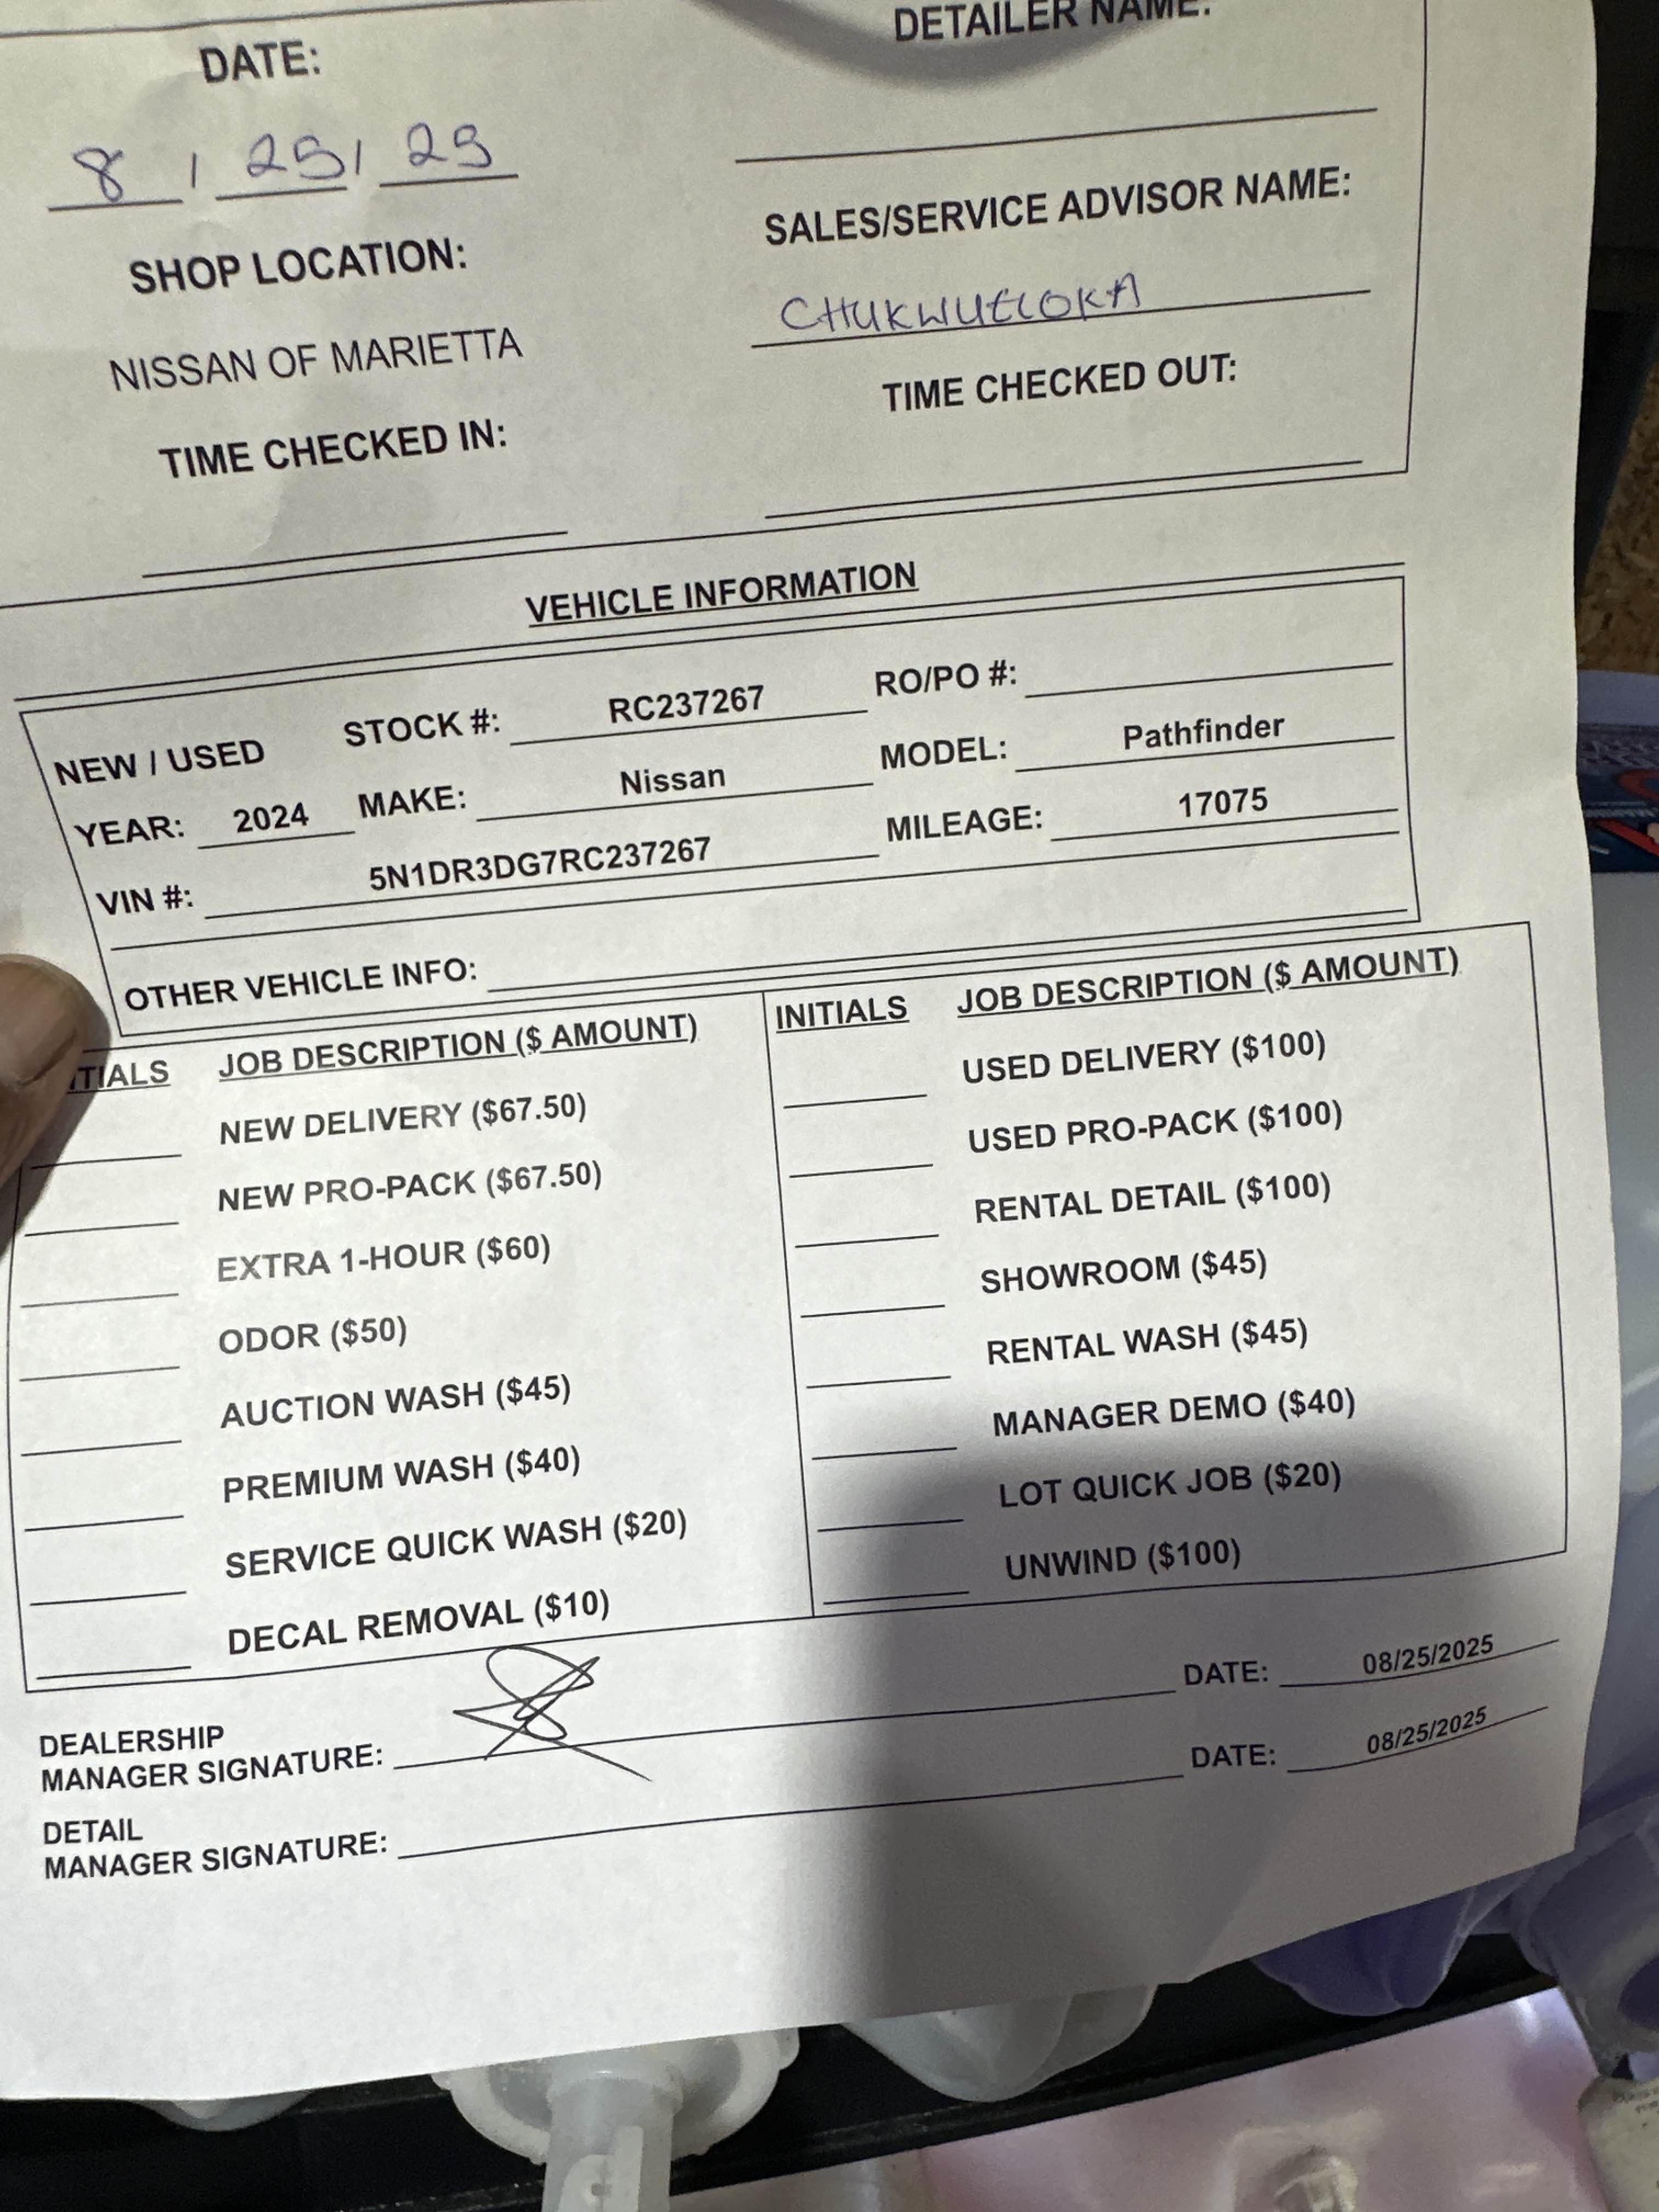 DATE:
DETAILER NAME:
8 / 25 / 25
SALES/SERVICE ADVISOR NAME:
SHOP LOCATION:
CHUKWUELOKA
NISSAN OF MARIETTA
TIME CHECKED OUT:
TIME CHECKED IN:
VEHICLE INFORMATION
NEW / USED STOCK #: RC237267 RO/PO #:
YEAR: 2024 MAKE: Nissan MODEL: Pathfinder
VIN #: 5N1DR3DG7RC237267 MILEAGE: 17075
OTHER VEHICLE INFO:
TIALS JOB DESCRIPTION ($ AMOUNT) INITIALS JOB DESCRIPTION ($ AMOUNT)
NEW DELIVERY ($67.50) USED DELIVERY ($100)
NEW PRO-PACK ($67.50) USED PRO-PACK ($100)
EXTRA 1-HOUR ($60) RENTAL DETAIL ($100)
ODOR ($50) SHOWROOM ($45)
AUCTION WASH ($45) RENTAL WASH ($45)
PREMIUM WASH ($40) MANAGER DEMO ($40)
SERVICE QUICK WASH ($20) LOT QUICK JOB ($20)
DECAL REMOVAL ($10) UNWIND ($100)
DEALERSHIP
MANAGER SIGNATURE: DATE: 08/25/2025
DETAIL
MANAGER SIGNATURE: DATE: 08/25/2025